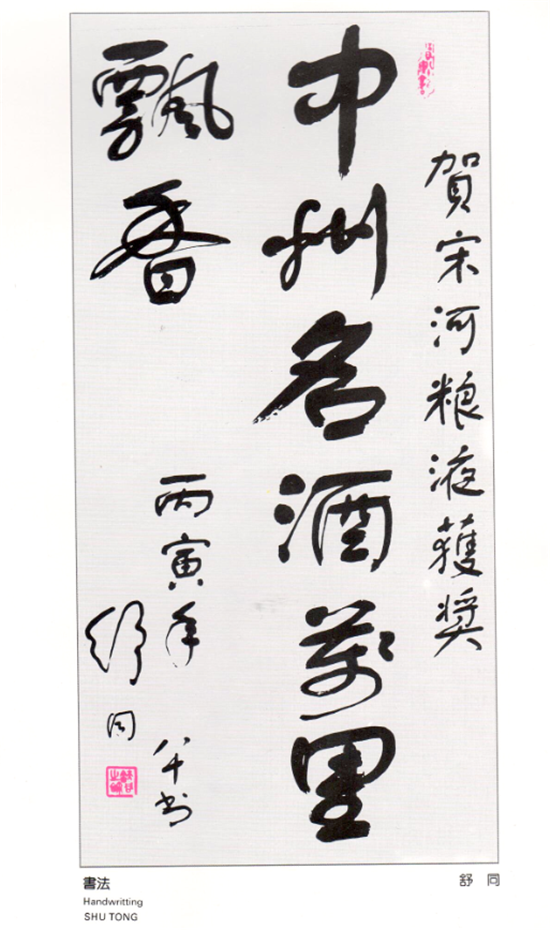 賀宋河粮液獲奖
中州名酒萬里
飄香
丙寅年
八十书
舒同
書法
舒 同
Handwritting
SHU TONG